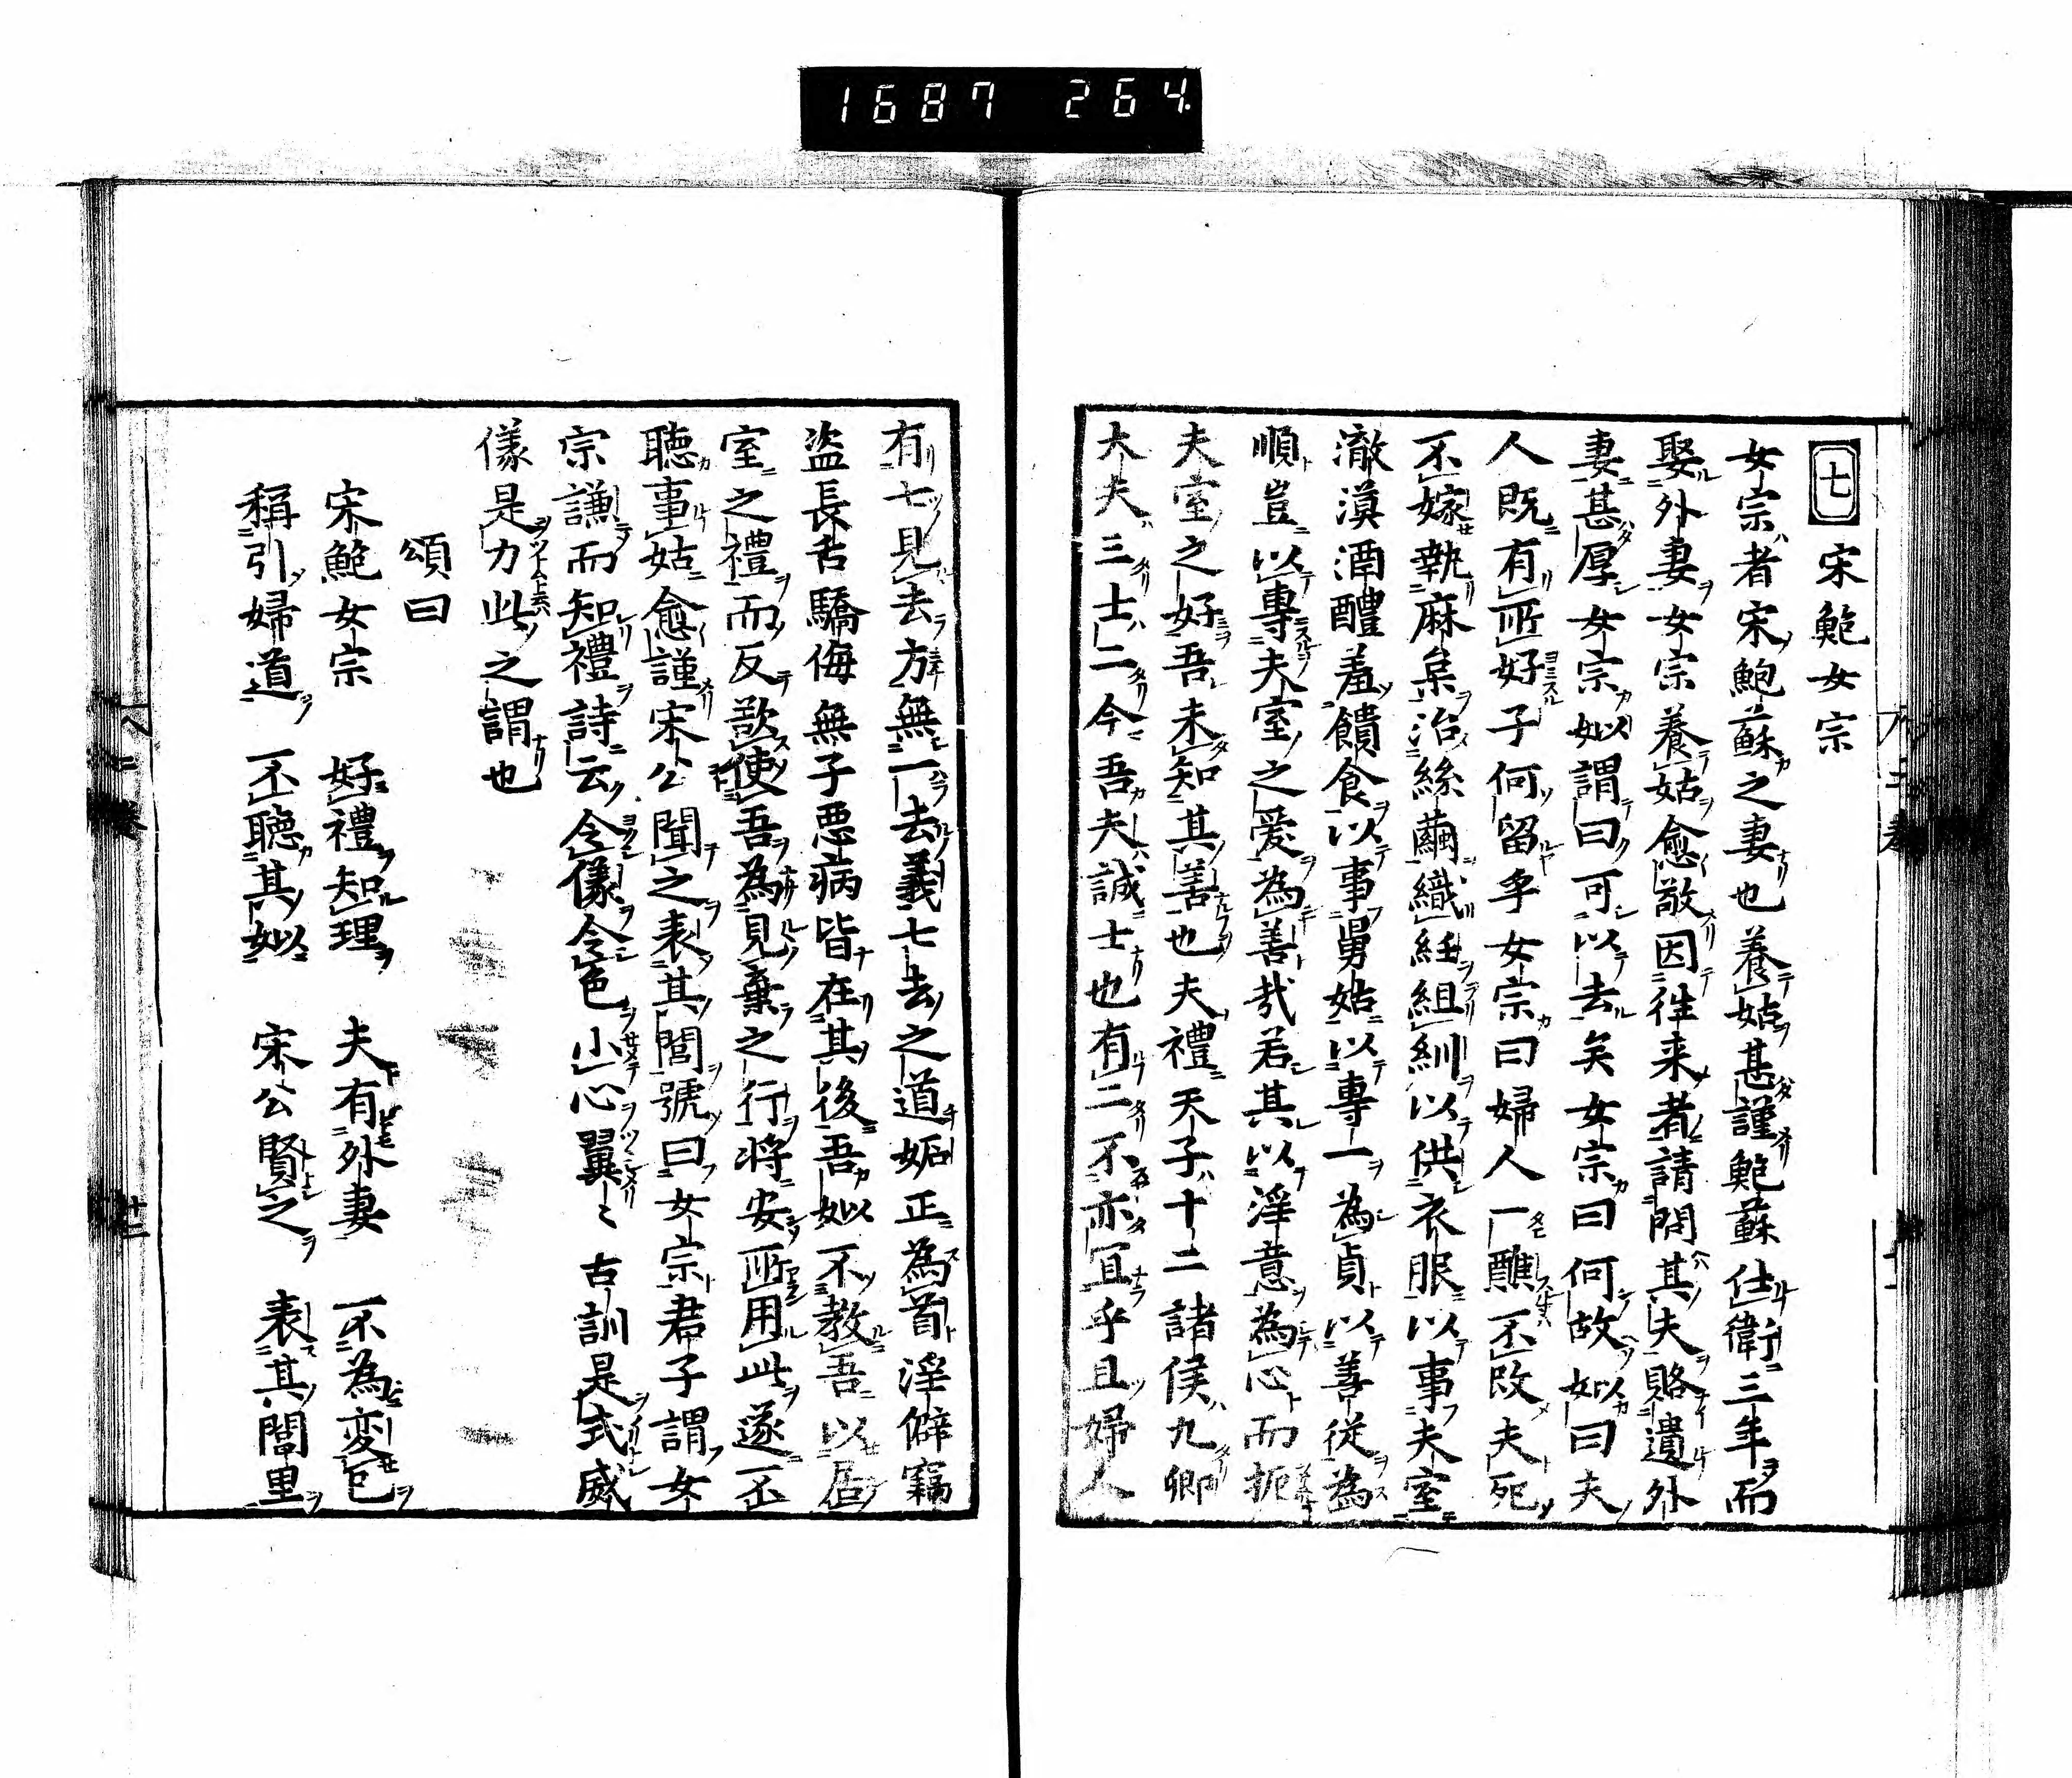 1687 264
七 宋鮑女宗
女宗者宋鮑蘇之妻也養姑甚謹鮑蘇仕衛三年而
娶外妻女宗養姑愈敬因徃来者請問其夫賂遺外
妻甚厚女宗姒謂曰可以去矣女宗曰何故姒曰夫
人既有所好子何留乎女宗曰婦人一醮不改夫死
不嫁執麻枲治絲繭織紝組紃以供衣服以事夫室
澈漠酒醴羞饋食以事舅姑以專一為貞以善從為
順豈以專夫室之愛為善哉若其以淫意為心而扼
夫室之好吾未知其善也夫禮天子十二諸侯九卿
大夫三士二今吾夫誠士也有二不亦冝乎且婦人
有七見去方無一去義七去之道妬正為首淫僻竊
盜長舌驕侮無子悪病皆在其後吾姒不教吾以居
室之禮而反欲使吾為見棄之行将安所用此遂不
聽事姑愈謹宋公聞之表其閭號曰女宗君子謂女
宗謙而知禮詩云令儀令色小心翼〻古訓是式威
儀是力此之謂也
頌曰
宋鮑女宗 好禮知理 夫有外妻 不為変已
稱引婦道 不聴其姒 宋公賢之 表其閭里